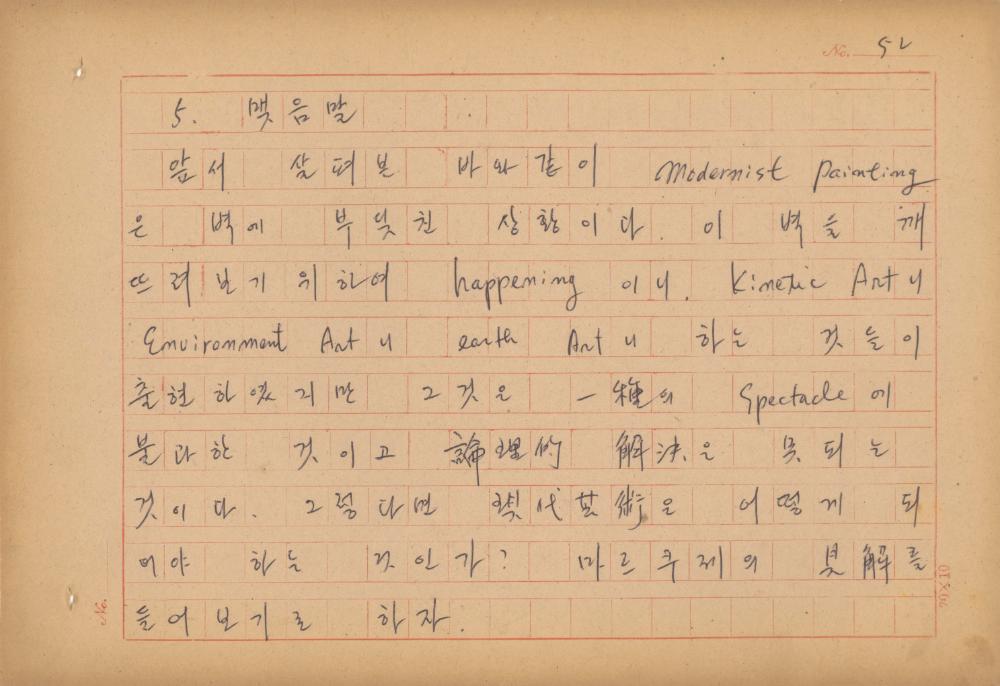 No. 52
5. 맺음말
앞서 살펴본 바와같이 Modernist Painting
은 벽에 부딪친 상황이다. 이 벽을 깨
뜨려 보기 위하여 happening 이니, Kinetic Art니
Environment Art니 earth Art니 하는 것들이
출현하였지만 그것은 一種의 Spectacle에
불과한 것이고 論理的 解決은 못되는
것이다. 그렇다면 現代芸術은 어떻게 되
어야 하는 것인가? 마르쿠제의 見解를
들어보기로 하자.
No.
20×10